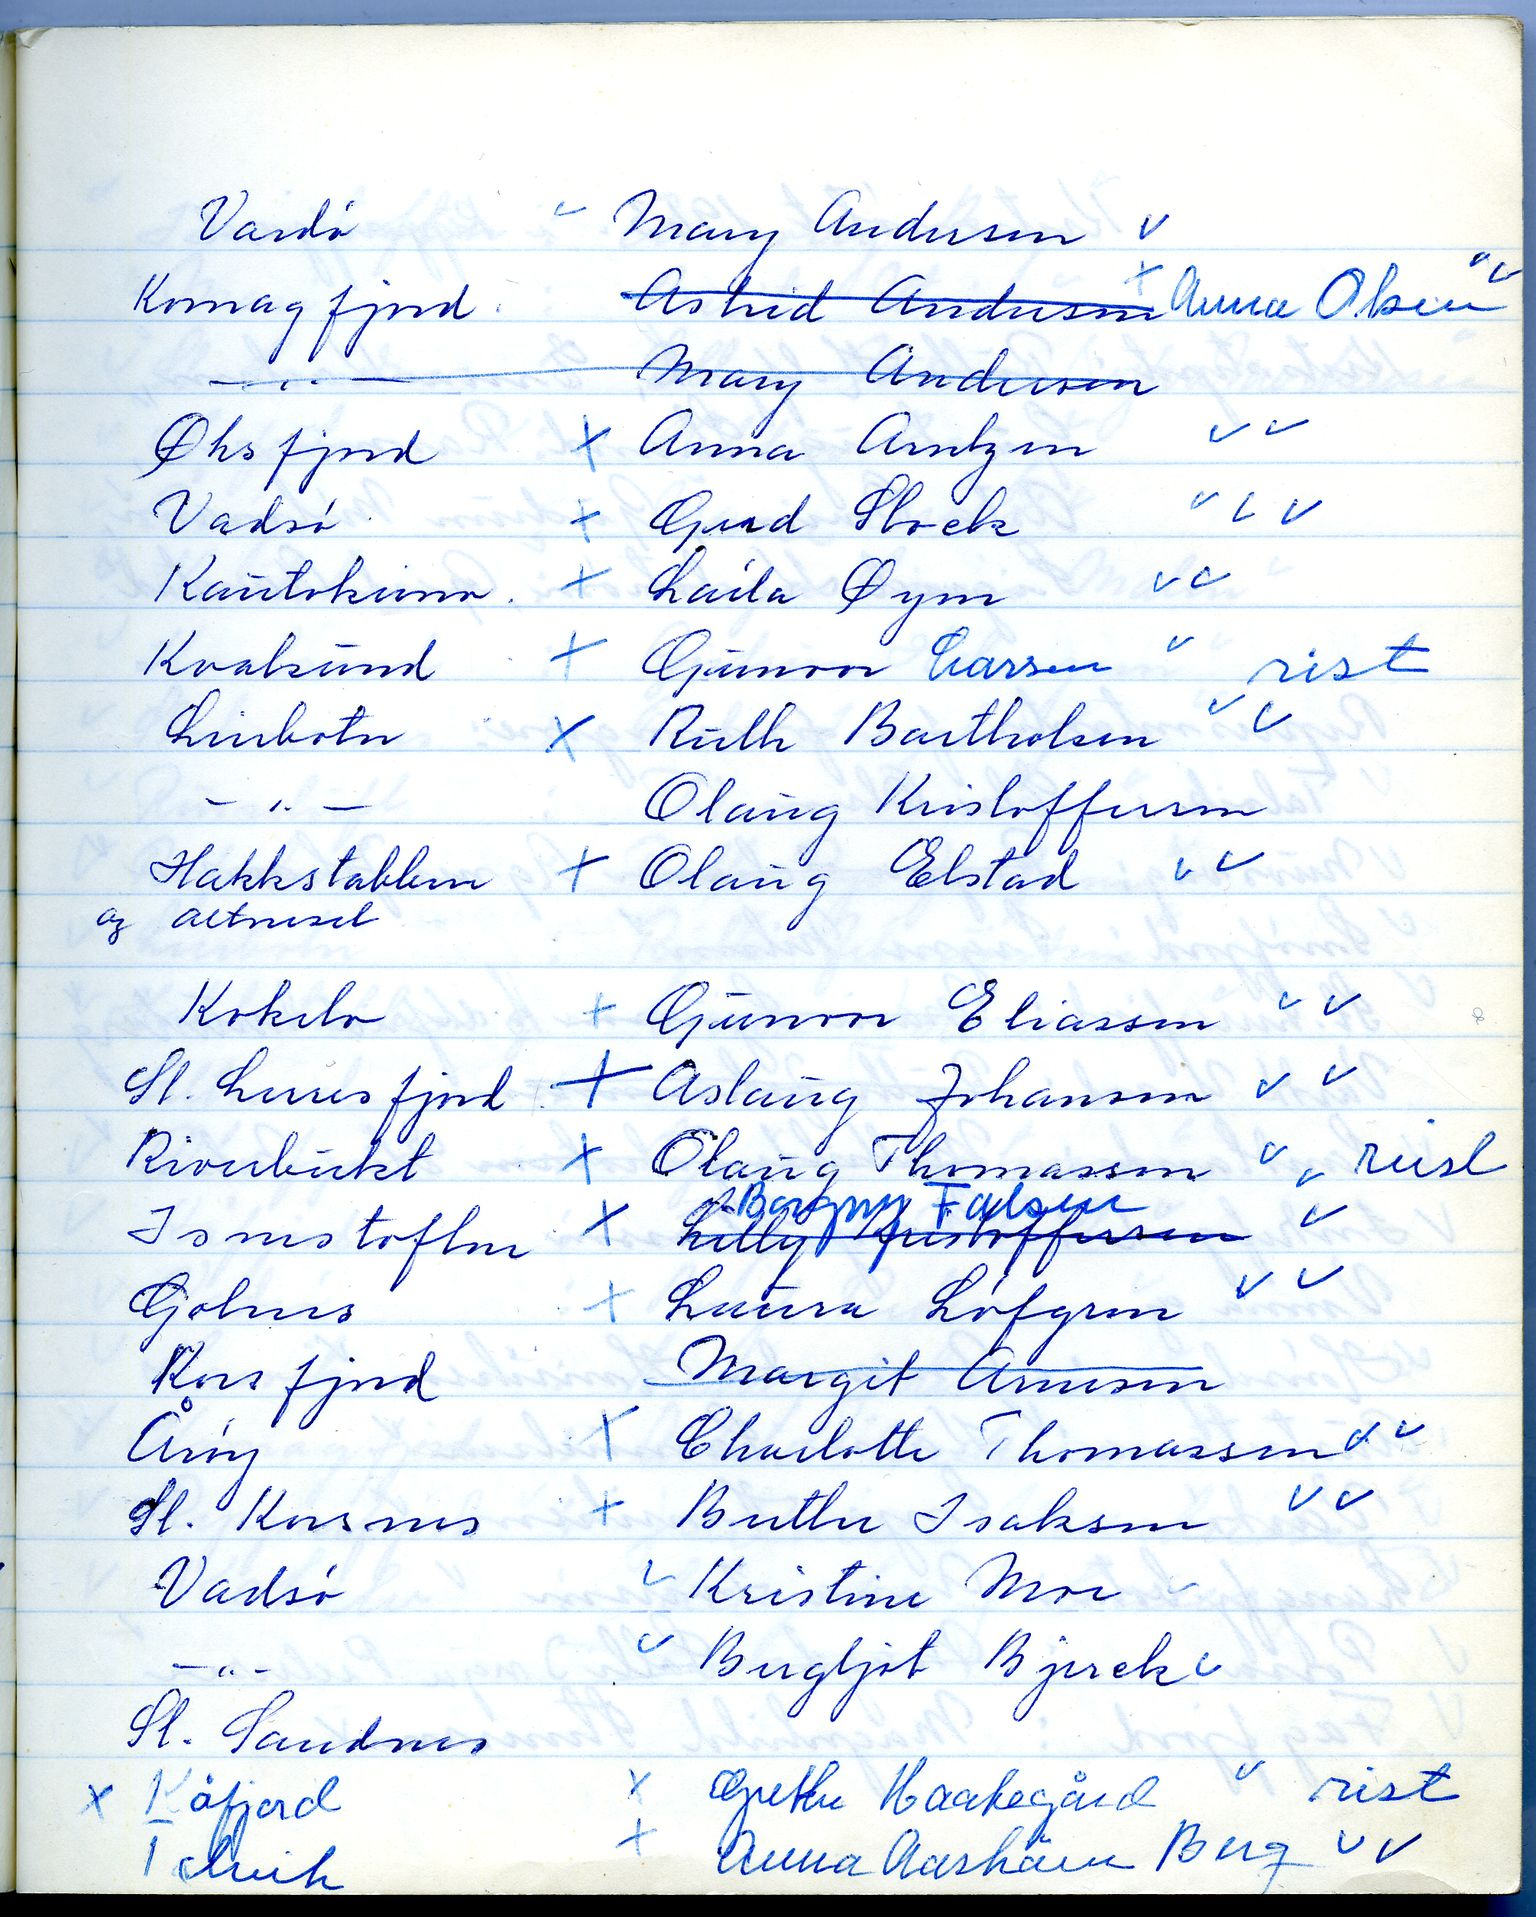 Vardø ✓ Mary Andersen ✓
Komagfjord. Astrid Andersen + Anna Olsen ✓✓
— " — Mary Andersen
Øksfjord X Anna Arntzen ✓✓
Vadsø + Gerd Stock ✓✓✓
Kautokeino. + Laila Øyen ✓✓
Kvalsund + Gunvor Larsen ✓ reist
Leirbotn X Ruth Bartholsen ✓✓
— " — Olaug Kristoffersen
Hakkstabben + Olaug Elstad ✓✓
og Altnesel
Kokelv + Gunvor Eliassen ✓✓
St. Lerresfjord + Aslaug Johansen ✓✓
Riverbukt X Olaug Thomassen ✓✓ reist
Borgny Falsen
Isnestoften X Lilly Kristoffersen ✓
Golnes + Laura Løfgren ✓✓
Korsfjord Margit Arnesen
Årøy X Charlotte Thomassen ✓✓
St. Korsnes + Berthe Isaksen ✓✓
Vadsø ✓ Kristine Moe
— " — ✓ Bergljot Bjerck ✓
St. Sandnes
X Kåfjord X Grethe Haakegård ✓ reist
Talvik + Anna Aarskäuu Berg ✓✓